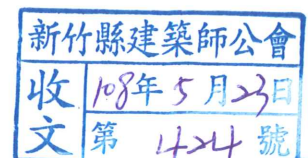 新竹縣建築師公會
收文
108年5月23日
第 424 號